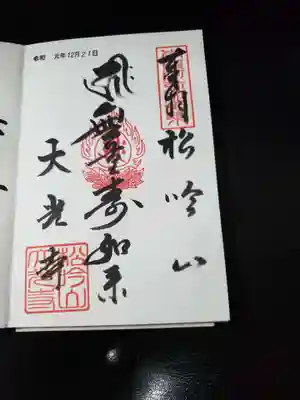 奉拝 松吟山
無量寿如来
天光寺
令和 元年12月21日